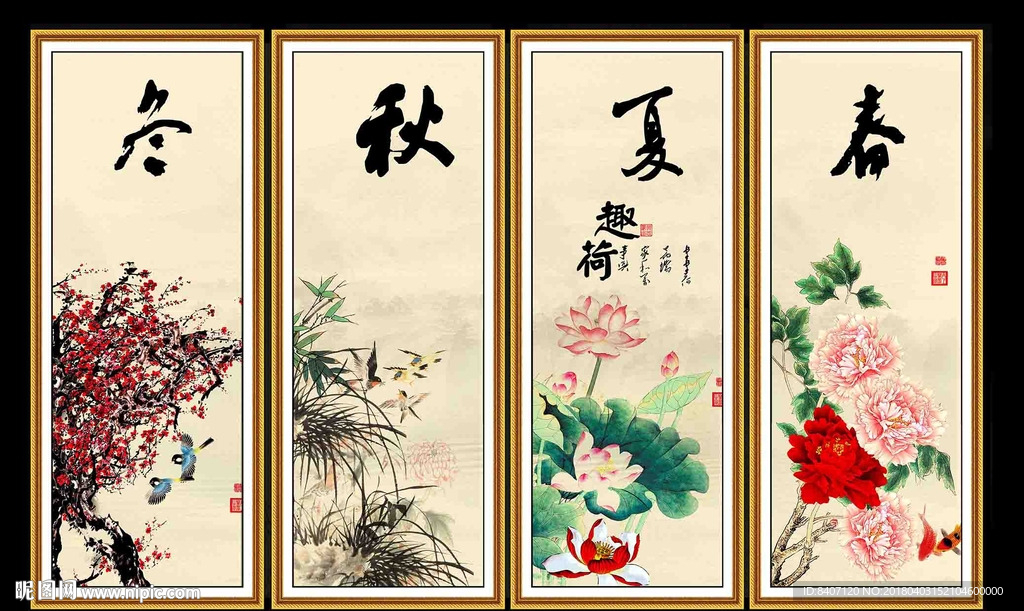 春
夏
秋
冬
趣
荷
昵图网 www.nipic.com
ID:8407120 NO:20180403152104600000